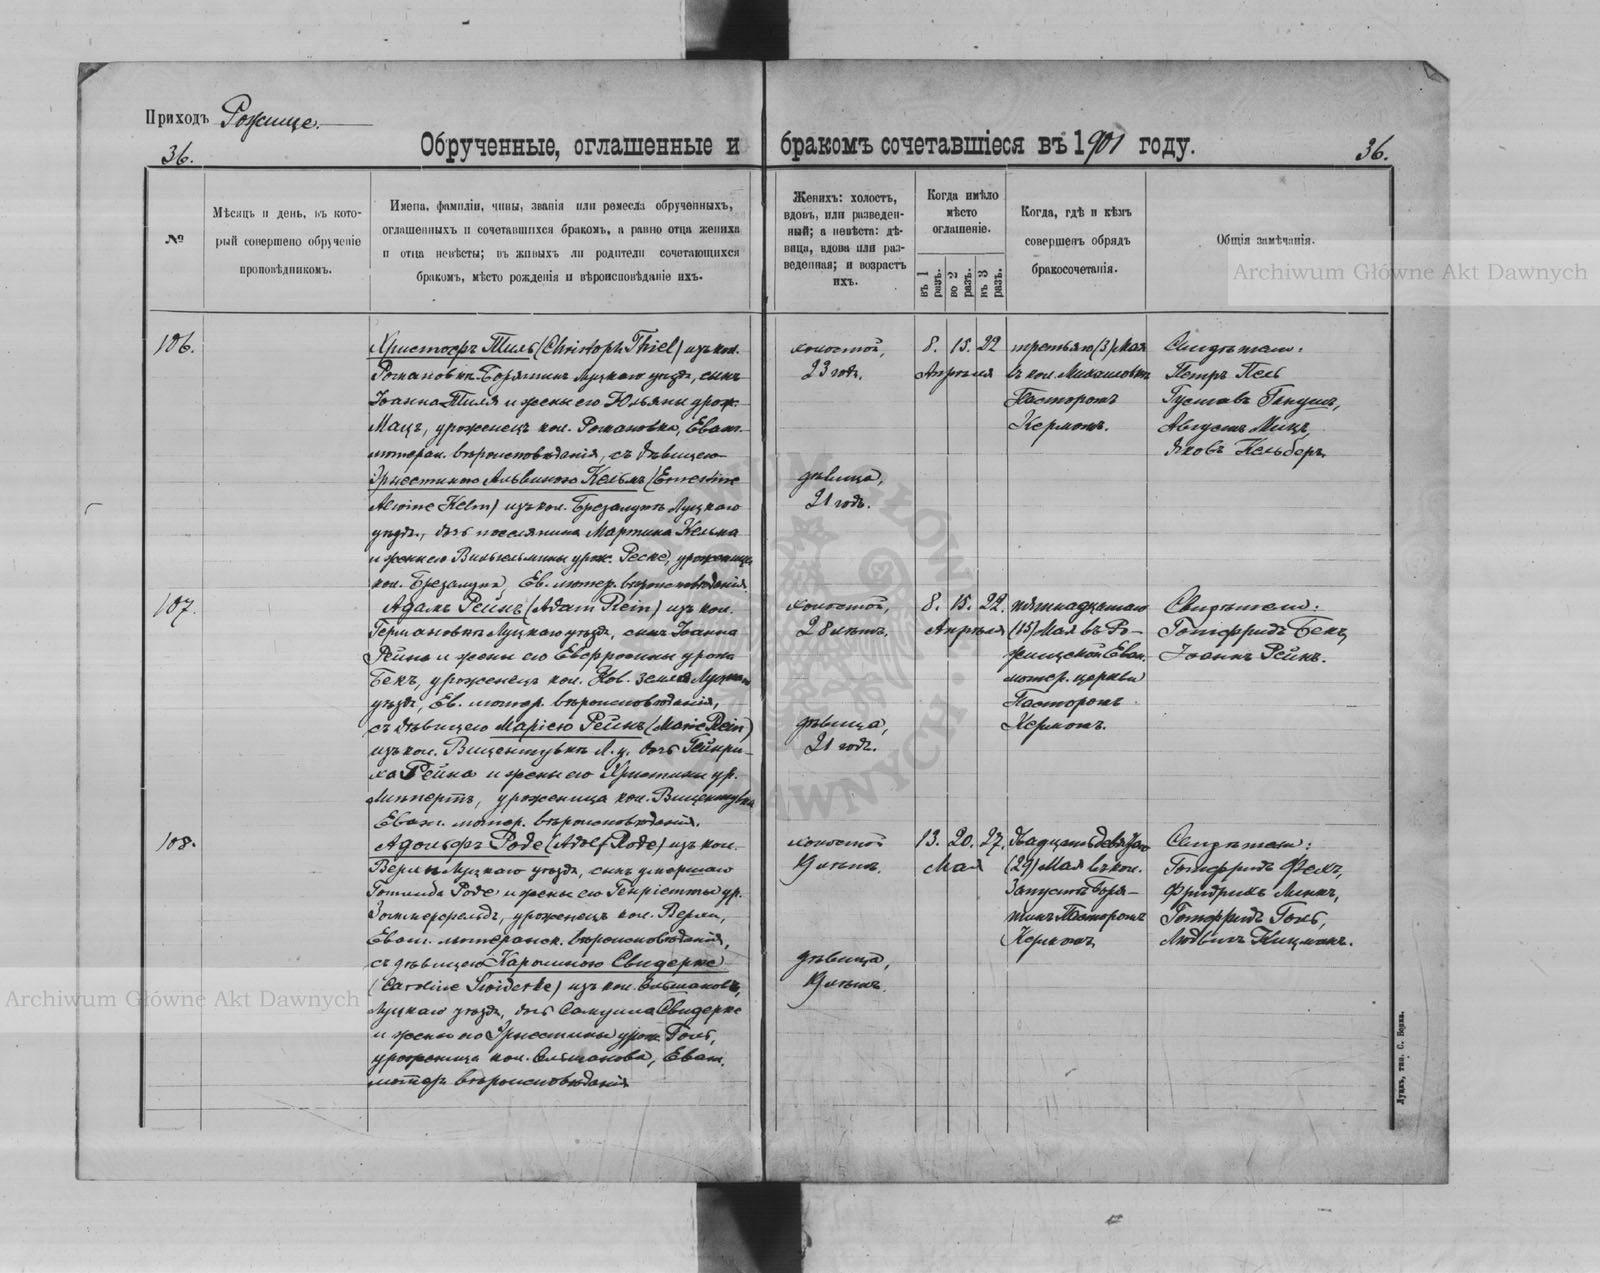 Приходъ Рожище.
36.
Обрученные, оглашенные и бракомъ сочетавшіеся въ 1901 году.
36.
№
Мѣсяцъ и день, въ кото-
рый совершено обрученіе
проповѣдникомъ.
Имена, фамиліи, чины, званія или ремесла обрученныхъ,
оглашенныхъ и сочетавшихся бракомъ, а равно отца жениха
и отца невѣсты; въ живыхъ ли родители сочетающихся
бракомъ, мѣсто рожденія и вѣроисповѣданіе ихъ.
Женихъ: холостъ,
вдовъ, или разведен-
ный; а невѣста: дѣ-
вица, вдова или раз-
веденная; и возрастъ
ихъ.
Когда имѣло
мѣсто
оглашеніе.
въ 1 разъ.
во 2 разъ.
въ 3 разъ.
Когда, гдѣ и кѣмъ
совершенъ обрядъ
бракосочетанія.
Общія замѣчанія.
Archiwum Główne Akt Dawnych
106.
Христофъ Тиль (Christoph Thiel) изъ кол.
Романовка-Борятинъ Луцкаго уѣзда, сынъ
Іоанна Тиля и жены его Юльяны урож.
Мацъ, уроженецъ кол. Романовка, Еванг.
лютеран. вѣроисповѣданія, съ дѣвицею
Эрнестиною Альвиною Кельмъ (Ernestine
Alwine Kelm) изъ кол. Брезалупъ Луцкаго
уѣзда, дочь поселянина Мартина Кельма
и жены его Вильгельмины урож. Реске, уроженица
кол. Брезалупъ, Ев. лютер. вѣроисповѣданія.
холостой,
23 годъ.
дѣвица,
21 годъ.
8. 15. 22
Апрѣля
третьяго (3) Мая
въ кол. Михайловкѣ
Пасторомъ
Кермомъ.
Свидѣтели:
Петръ Пель
Густавъ
Августъ Минъ,
Яковъ Кельберъ.
107.
Адамъ Рейнъ (Adam Rein) изъ кол.
Германовкѣ Луцкаго уѣзда, сынъ Іоанна
Рейнъ и жены его Евфросины урожд.
Бекъ, уроженецъ кол. Нов. Земля Луцкаго
уѣзда, Ев. лютер. вѣроисповѣданія,
съ дѣвицею Маріею Рейнъ (Marie Rein)
изъ кол. Вицентувкѣ Л. у. дочь Гейнри-
ха Рейна и жены его Христины ур.
Липпертъ, уроженица кол. Вицентувка
Еванг. лютер. вѣроисповѣданія.
холостой,
28 лѣтъ.
дѣвица,
21 годъ.
8. 15. 22.
Апрѣля
пятнадцатаго
(15) Мая въ Ро-
жищской Еван.
лютер. церкви
Пасторомъ
Кермомъ.
Свидѣтели:
Готфридъ Бекъ,
Іоаннъ Рейнъ.
108.
Адольфъ Роде (Adolf Rode) изъ кол.
Верли Луцкаго уѣзда, сынъ умершаго
Готлиба Роде и жены его Генріетты ур.
Зоммерфельдъ, уроженецъ кол. Верли,
Еванг. лютеранск. вѣроисповѣданія,
съ дѣвицею Каролиною Свидерке
(Caroline Swiderke) изъ кол. Ольшановъ,
Луцкаго уѣзда, дочь Самуила Свидерке
и жены его Эрнестины урож. Голь,
уроженица кол. Ольшанова, Еванг.
лютер. вѣроисповѣданія
холостой
19 лѣтъ.
дѣвица,
19 лѣтъ.
13. 20. 27.
Мая
Двадцать девятаго
(29) Мая въ кол.
Запустъ Боря-
тинъ Пасторомъ
Кермомъ
Свидѣтели:
Готфридъ Фелъ,
Фридрихъ Минкъ,
Готфридъ Голь,
Людвигъ Кицманъ.
Archiwum Główne Akt Dawnych
Луцкъ, тип. С. Бодка.